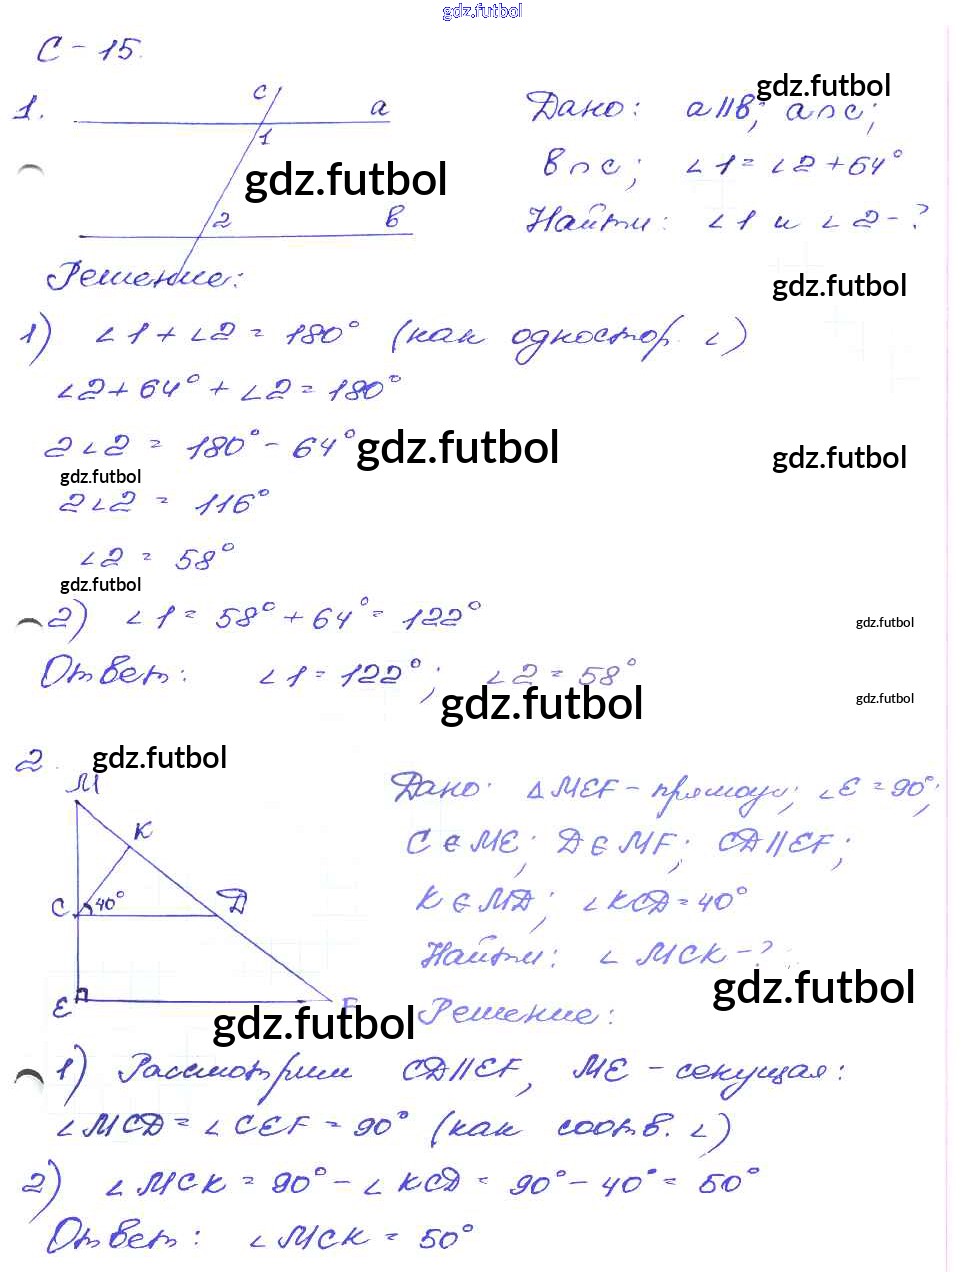 gdz.futbol
С - 15.
1.
c
a
1
2
в
gdz.futbol
gdz.futbol
Дано: a∥в; a∩c;
в∩c; ∠1 = ∠2 + 64°
Найти: ∠1 и ∠2 - ?
Решение:
gdz.futbol
1) ∠1 + ∠2 = 180° (как одностор. ∠)
∠2 + 64° + ∠2 = 180°
2∠2 = 180° - 64°
gdz.futbol
gdz.futbol
gdz.futbol
2∠2 = 116°
∠2 = 58°
gdz.futbol
2) ∠1 = 58° + 64° = 122°
gdz.futbol
Ответ: ∠1 = 122°; ∠2 = 58°
gdz.futbol
gdz.futbol
2.
gdz.futbol
M
K
C
40°
D
E
F
Дано: △MEF - прямоуг; ∠E = 90°;
C ∈ ME; D ∈ MF; CD∥EF;
K ∈ MD; ∠KCD = 40°
Найти: ∠MCK - ?
gdz.futbol
gdz.futbol
Решение:
1) Рассмотрим CD∥EF, ME - секущая:
∠MCD = ∠CEF = 90° (как соотв. ∠)
2) ∠MCK = 90° - ∠KCD = 90° - 40° = 50°
Ответ: ∠MCK = 50°